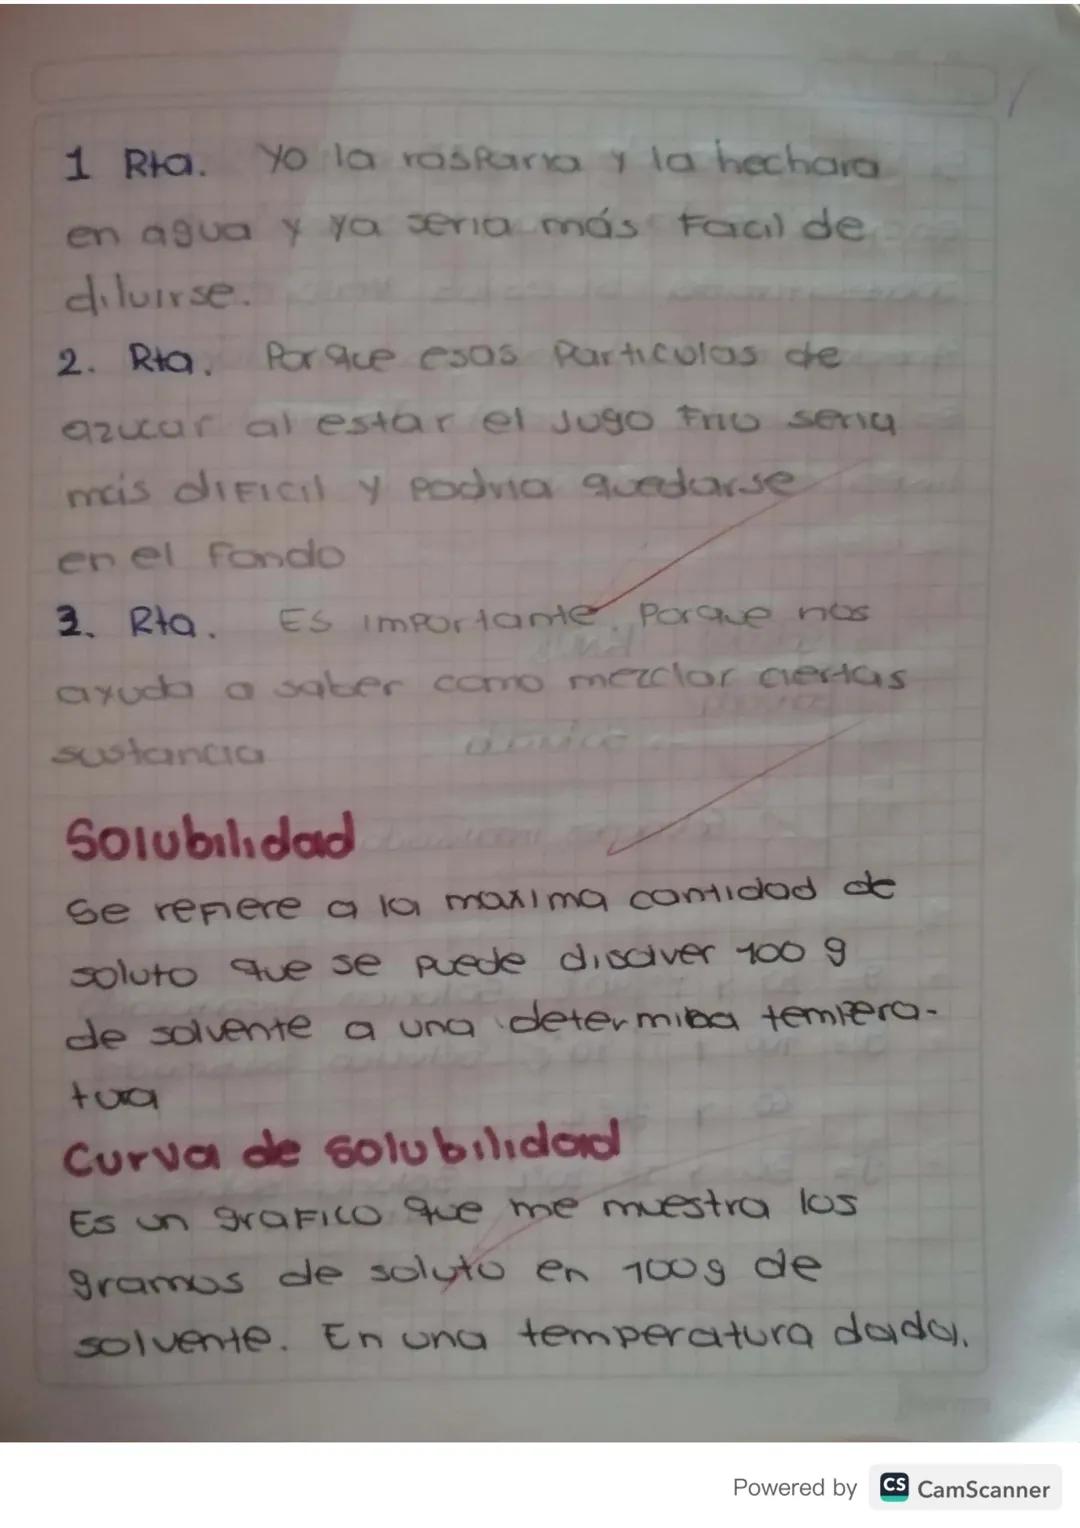 1 Rta. Yo la rasparia y la hechara
en agua y ya seria más Facil de
diluirse.
2. Rta. Porque esas Particulas de
azucar al estar el Jugo Frio seria
más diFicil y Podria quedarse
en el Fondo
3. Rta. Es importante Porque nos
ayuda a saber como mezclar ciertas
sustancia
Solubilidad
Se refiere a la maxima cantidad de
soluto que se puede disolver 100 g
de solvente a una determiba tempera-
tura
Curva de solubilidad
Es un graFico que me muestra los
gramos de soluto en 100g de
solvente. En una temperatura dada.
Powered by CS CamScanner